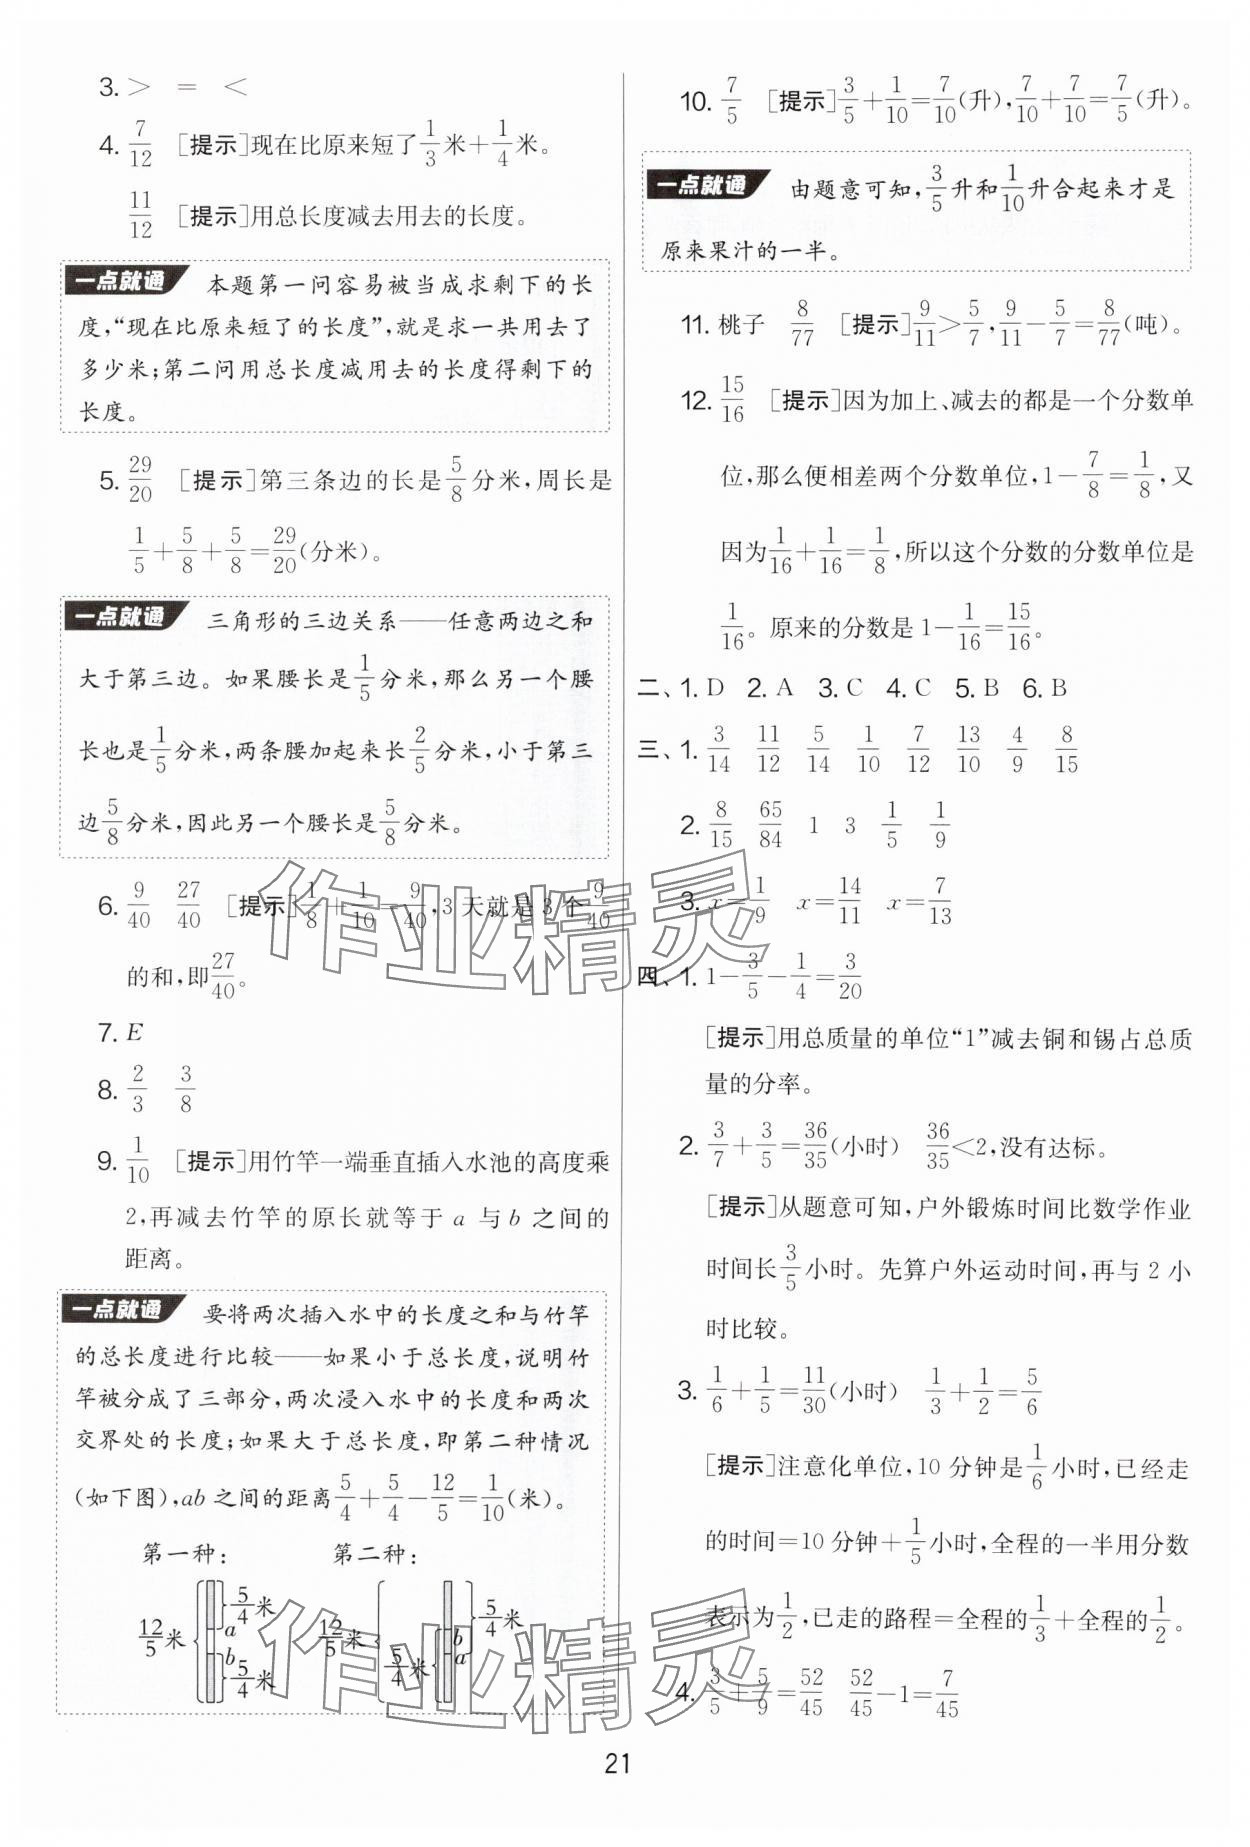 3. > = <
4. 7/12 [提示]现在比原来短了1/3米+1/4米。
11/12 [提示]用总长度减去用去的长度。
一点就通 本题第一问容易被当成求剩下的长
度,“现在比原来短了的长度”,就是求一共用去了
多少米;第二问用总长度减用去的长度得剩下的
长度。
5. 29/20 [提示]第三条边的长是5/8分米,周长是
1/5+5/8+5/8=29/20(分米)。
一点就通 三角形的三边关系——任意两边之和
大于第三边。如果腰长是1/5分米,那么另一个腰
长也是1/5分米,两条腰加起来长2/5分米,小于第三
边5/8分米,因此另一个腰长是5/8分米。
6. 9/40 27/40 [提示]1/8+1/10=9/40,3天就是3个9/40
的和,即27/40。
7. E
8. 2/3 3/8
9. 1/10 [提示]用竹竿一端垂直插入水池的高度乘
2,再减去竹竿的原长就等于a与b之间的
距离。
一点就通 要将两次插入水中的长度之和与竹竿
的总长度进行比较——如果小于总长度,说明竹
竿被分成了三部分,两次浸入水中的长度和两次
交界处的长度;如果大于总长度,即第二种情况
(如下图),ab之间的距离5/4+5/4-12/5=1/10(米)。
第一种: 第二种:
12/5米 5/4米 a b 5/4米 12/5米 5/4米 b a 5/4米
10. 7/5 [提示]3/5+1/10=7/10(升),7/10+7/10=7/5(升)。
一点就通 由题意可知,3/5升和1/10升合起来才是
原来果汁的一半。
11. 桃子 8/77 [提示]9/11>5/7,9/11-5/7=8/77(吨)。
12. 15/16 [提示]因为加上、减去的都是一个分数单
位,那么便相差两个分数单位,1-7/8=1/8,又
因为1/16+1/16=1/8,所以这个分数的分数单位是
1/16。原来的分数是1-1/16=15/16。
二、1. D 2. A 3. C 4. C 5. B 6. B
三、1. 3/14 11/12 5/14 1/10 7/12 13/10 4/9 8/15
2. 8/15 65/84 1 3 1/5 1/9
3. x=1/9 x=14/11 x=7/13
四、1. 1-3/5-1/4=3/20
[提示]用总质量的单位“1”减去铜和锡占总质
量的分率。
2. 3/7+3/5=36/35(小时) 36/35<2,没有达标。
[提示]从题意可知,户外锻炼时间比数学作业
时间长3/5小时。先算户外运动时间,再与2小
时比较。
3. 1/6+1/5=11/30(小时) 1/3+1/2=5/6
[提示]注意化单位,10分钟是1/6小时,已经走
的时间=10分钟+1/5小时,全程的一半用分数
表示为1/2,已走的路程=全程的1/3+全程的1/2。
4. 3/5+5/9=52/45 52/45-1=7/45
21
作业精灵
作业精灵